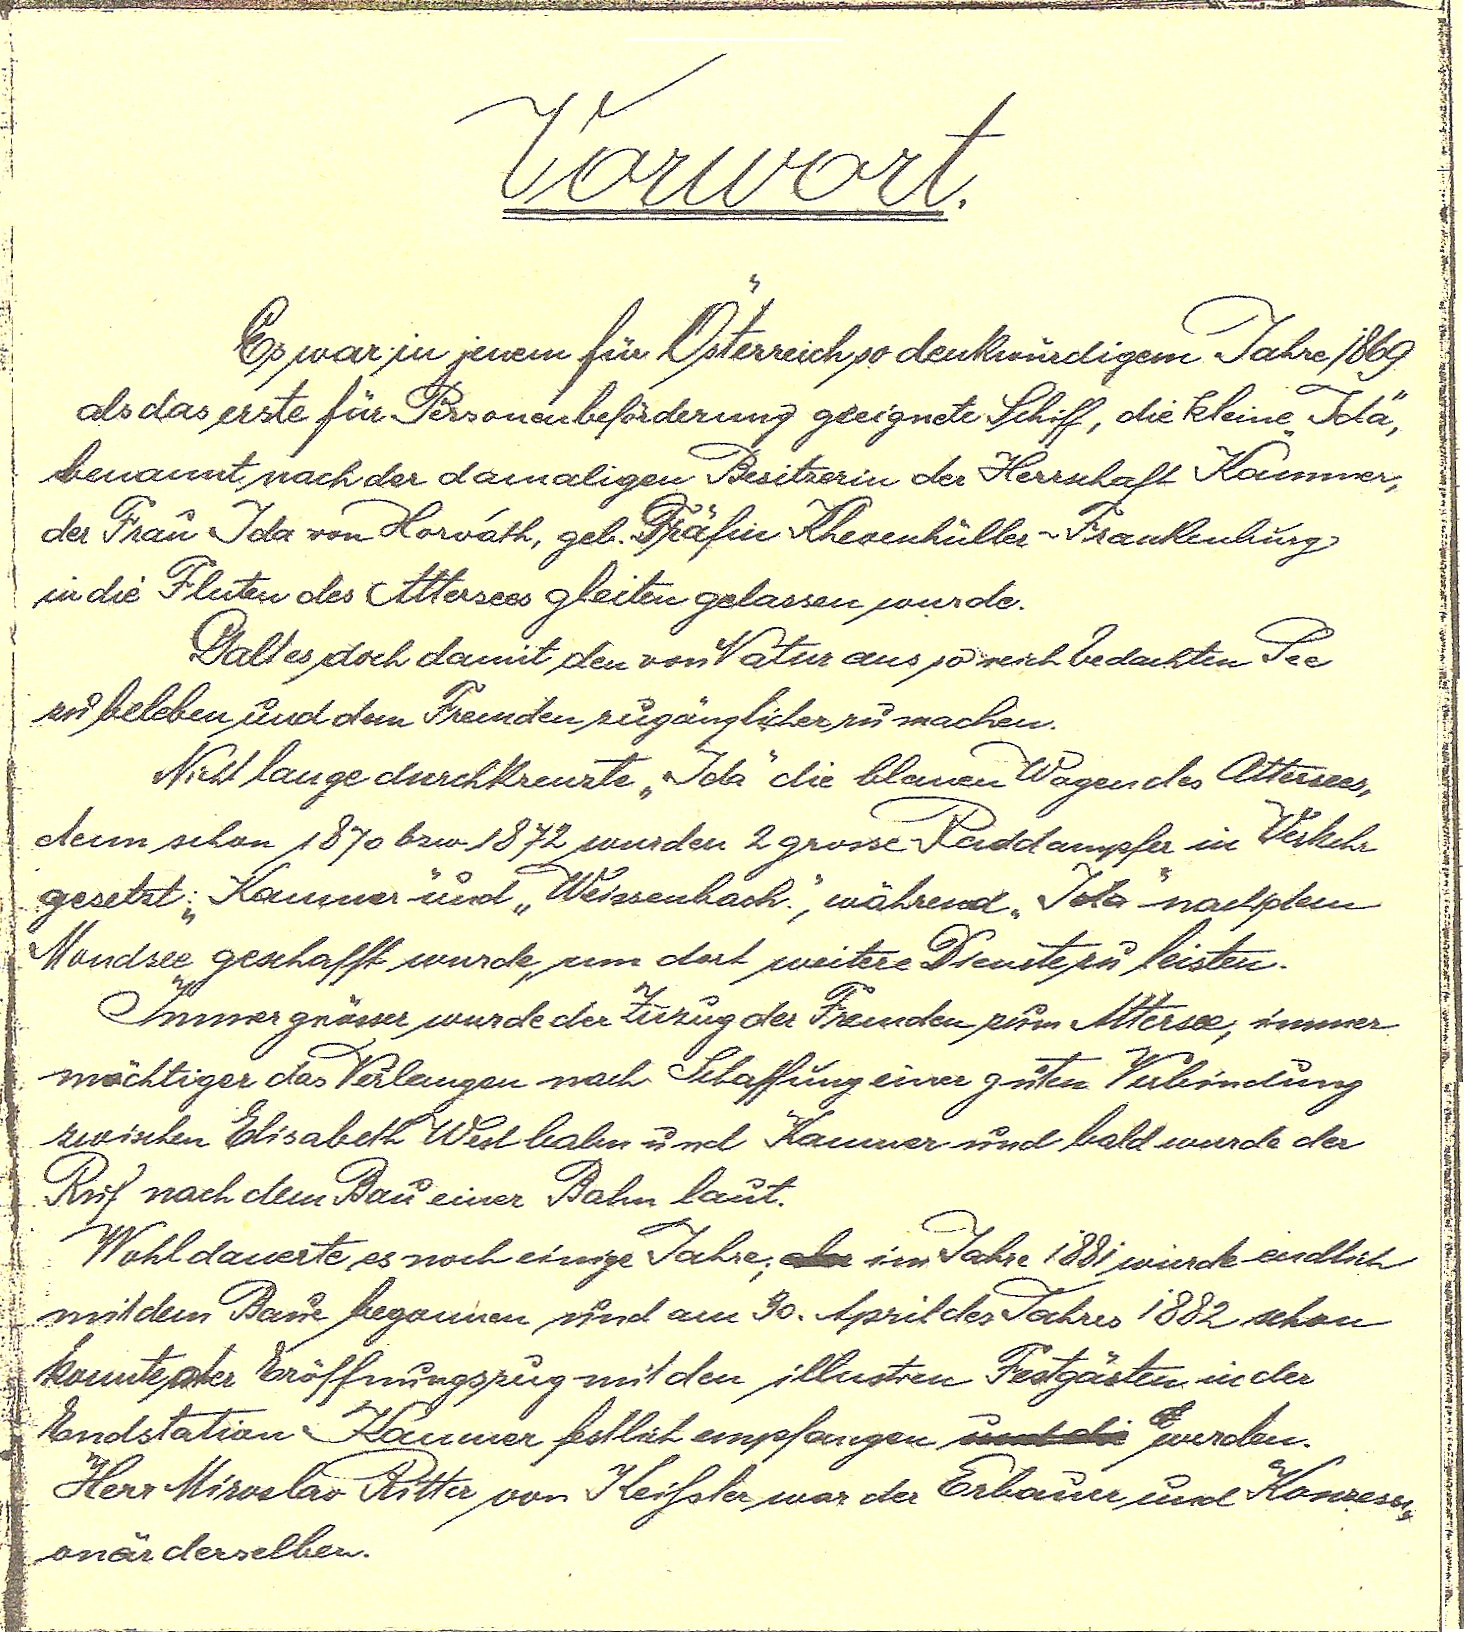 Vorwort.
Es war in jenem für Österreich so denkwürdigem Jahre 1869
als das erste für Personenbeförderung geeignete Schiff, die kleine „Ida",
benannt nach der damaligen Besitzerin der Herrschaft Kammer,
der Frau Ida von Horváth, geb. Gräfin Khevenhüller-Frankenburg
in die Fluten des Attersees gleiten gelassen wurde.
Galt es doch damit den von Natur aus so reich bedachten See
zu beleben und dem Fremden zugänglicher zu machen.
Nicht lange durchkreuzte „Ida" die blauen Wogen des Attersees,
denn schon 1870 bzw. 1872 wurden 2 grosse Raddampfer in Verkehr
gesetzt: „Kammer" und „Weissenbach", während „Ida" nach dem
Mondsee geschafft wurde, um dort weitere Dienste zu leisten.
Immer grösser wurde der Zuzug der Fremden zum Attersee, immer
mächtiger das Verlangen nach Schaffung einer guten Verbindung
zwischen Elisabeth Westbahn und Kammer und bald wurde der
Ruf nach dem Bau einer Bahn laut.
Wohl dauerte es noch einige Jahre, im Jahre 1881 wurde endlich
mit dem Baue begonnen und am 30. April des Jahres 1882 schon
konnte der Eröffnungszug mit den illustren Festgästen in der
Endstation Kammer festlich empfangen werden.
Herr Miroslav Ritter von Keißler war der Erbauer und Konzessi-
onär derselben.